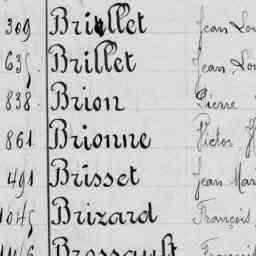 309 Brillet Jean Lou
635 Brillet Jean Lou
838 Brion Pierre
861 Brionne Victor
491 Brisset Jean Mari
1045 Brizard François
Brossault